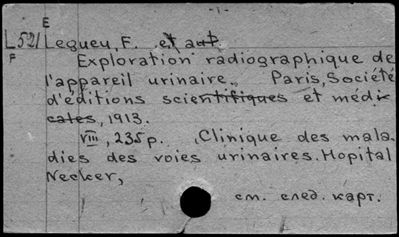 E
L521 Legueu, F. et aut.
F
Exploration radiographique de
l'appareil urinaire. Paris, Société
d'éditions scientifiques et médi-
cales, 1913.
VIII, 235p. Clinique des mala-
dies des voies urinaires. Hopital
Necker,
см. след. карт.